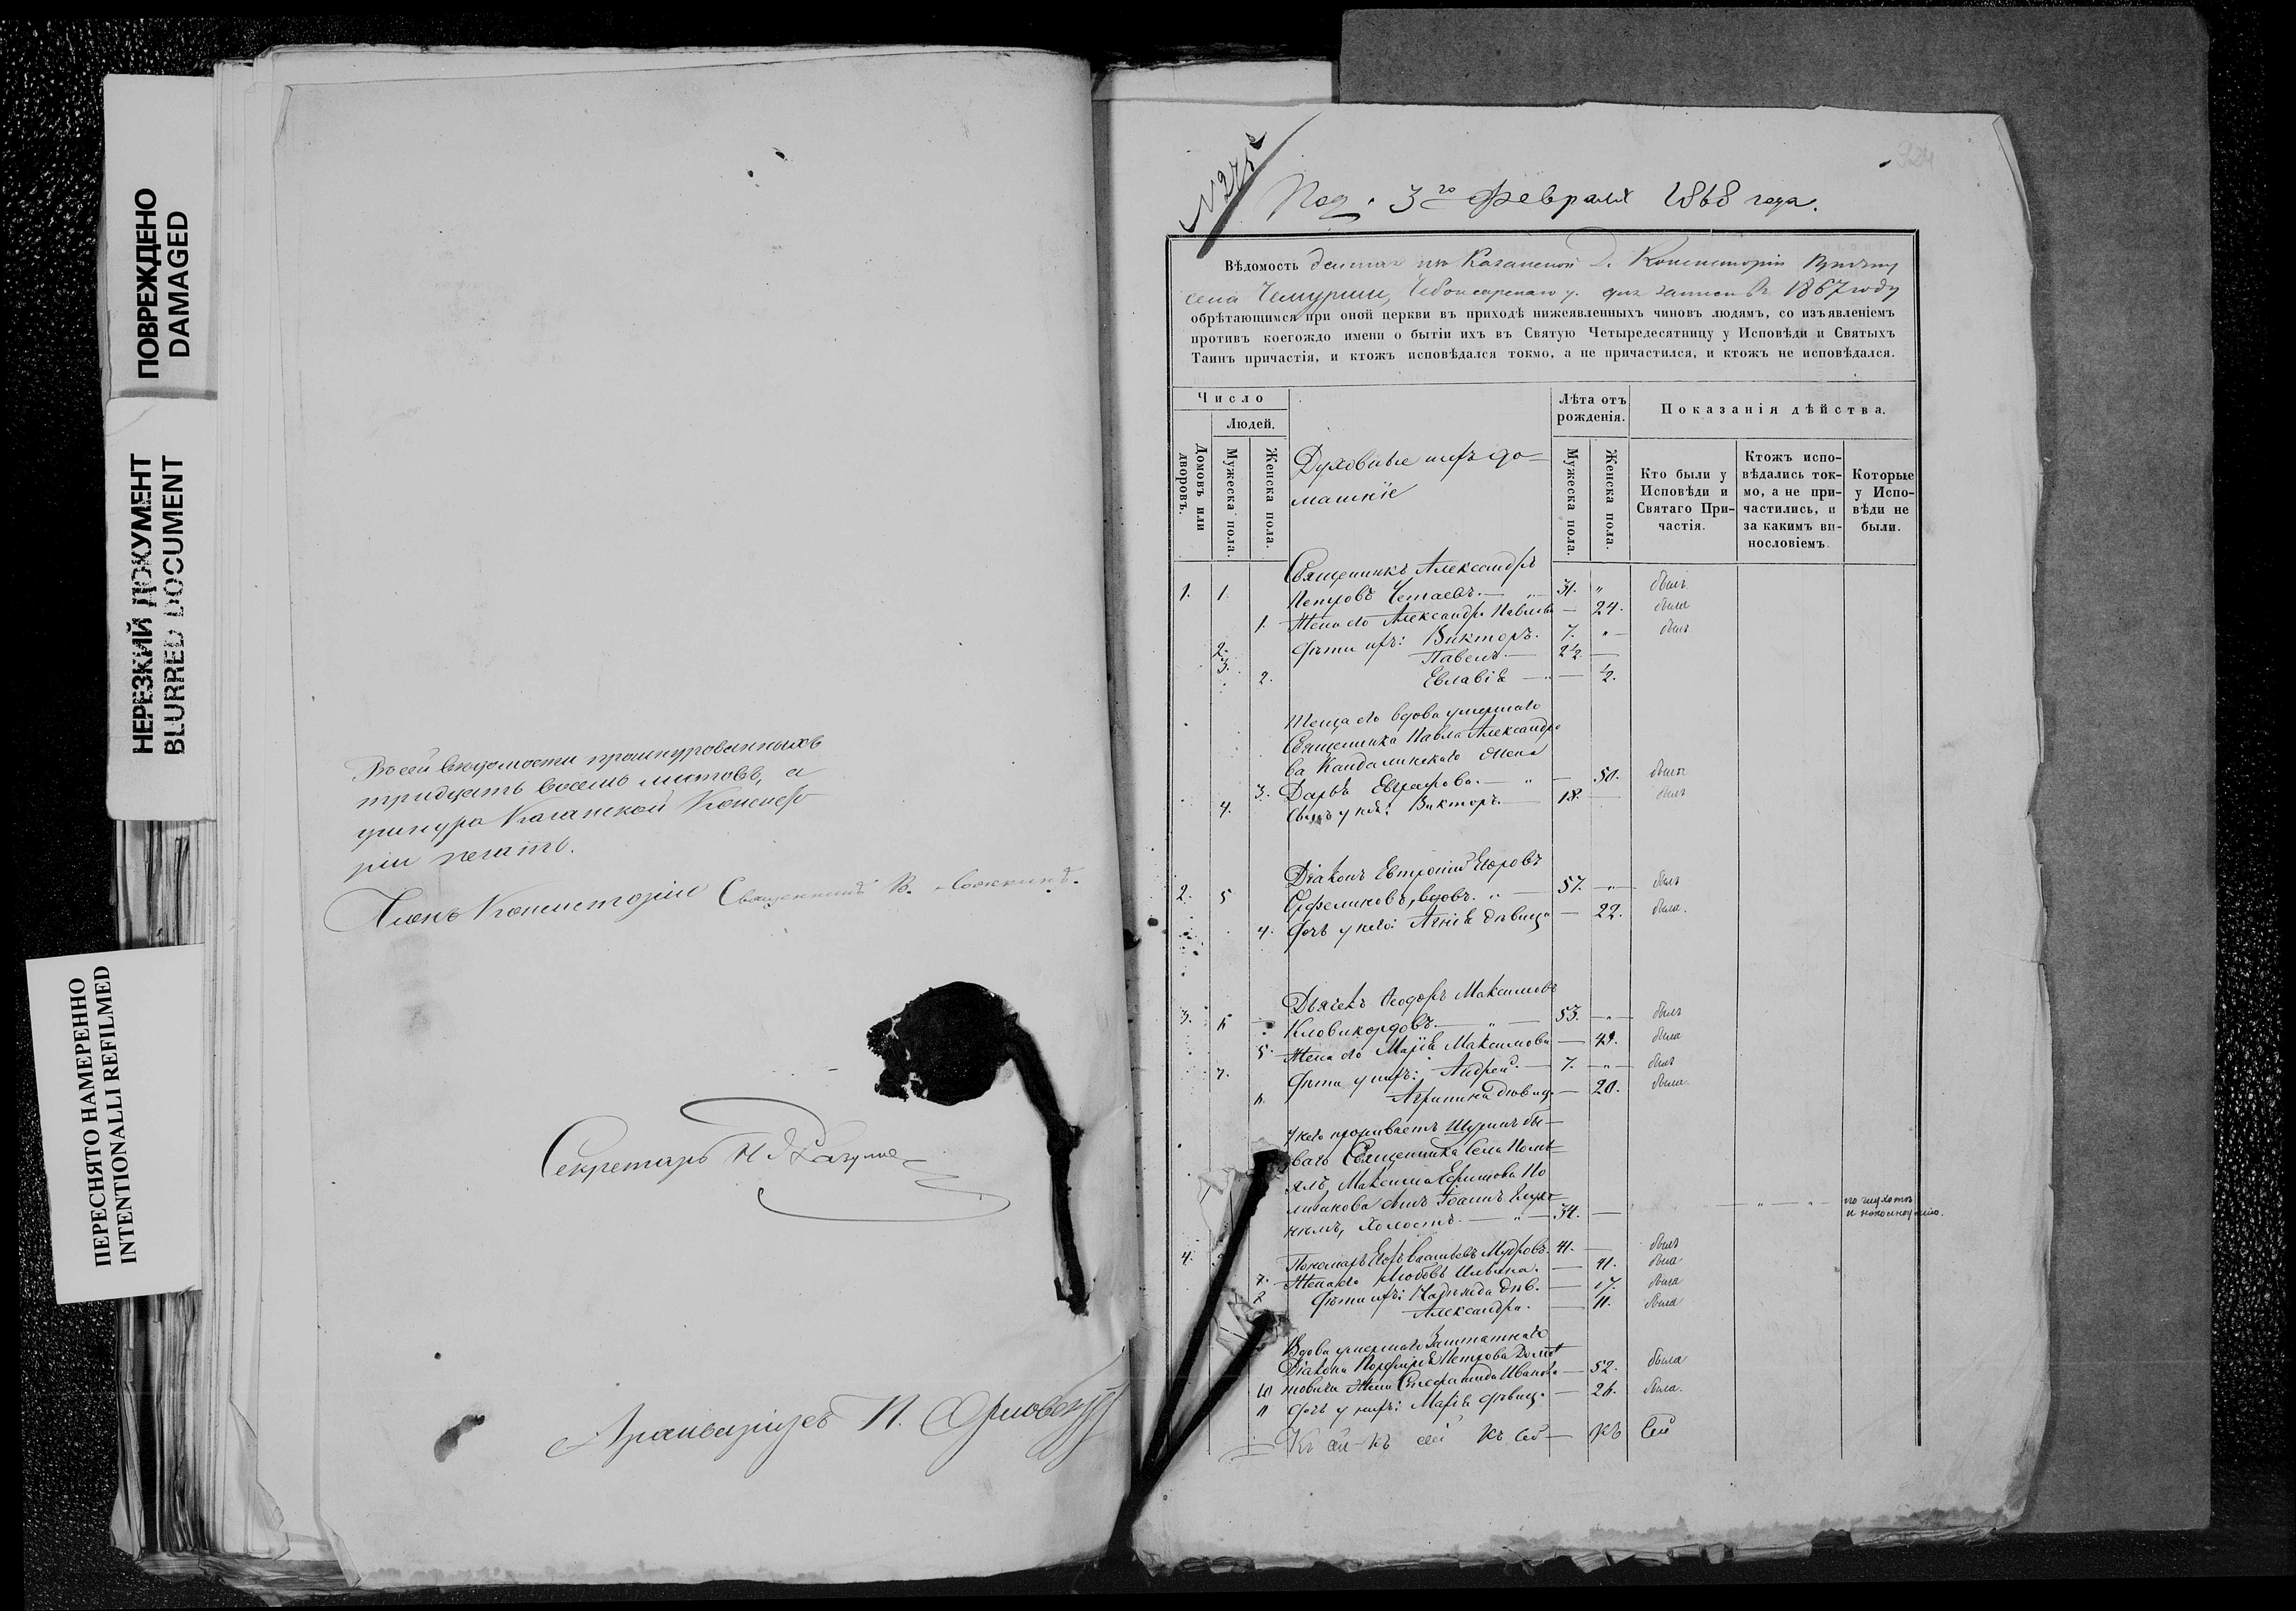 ПОВРЕЖДЕНО
DAMAGED
НЕРЕЗКИЙ ДОКУМЕНТ
BLURRED DOCUMENT
ПЕРЕСНЯТО НАМЕРЕННО
INTENTIONALLI REFILMED
Въ сей ведомости прошнурованныхъ
тридцать восемь листовъ, а
шнура Казанской Консисто
ріи печать.
Членъ Консисторіи Священникъ В.
Секретарь Н
П.
№ 275
924
Под. 3го Февраля 1868 года.
Вѣдомость данная изъ Казанской Д. Консисторіи причту
села Чемурши, Чебоксарскаго у. для записи въ 1867 году
обрѣтающимся при оной церкви въ приходѣ нижеявленныхъ чиновъ людямъ, со изъявленіемъ
противъ коегождо имени о бытіи ихъ въ Святую Четыредесятницу у Исповѣди и Святыхъ
Таинъ причастія, и ктожъ исповѣдался токмо, а не причастился, и ктожъ не исповѣдался.
Число
Людей.
Домовъ или дворовъ.
Мужеска пола.
Женска пола.
Духовные ихъ до-
машніе
Лѣта отъ
рожденія.
Мужеска пола.
Женска пола.
Показанія дѣйства.
Кто были у
Исповѣди и
Святаго При-
частія.
Ктожъ испо-
вѣдались ток-
мо, а не при-
частились, и
за какимъ ви-
нословіемъ.
Которые
у Испо-
вѣди не
были.
Священникъ Александръ
1. 1. Петровъ Чешаевъ. — " — 31. " былъ
1. Жена его Александра Павлова — 24. была
2. Дѣти ихъ: Викторъ. 7. " — былъ
3. Павелъ. — 2½ —
2. Евлавія — " — ½.
Теща его вдова умершаго
Священника Павла Александро
ва Кандалинскаго жена
3. Дарья Евграфова. — " — 50. была
4. Сынъ у ней: Викторъ. — 18. — былъ
Діаконъ Евтропій Егоровъ
2. 5 вдовъ. " — 57. — " — былъ
4. Дочь у него: Агнія дѣвица — 22. была.
Дьячекъ Ѳеодоръ Максимовъ
3. 6 Кловикордовъ. — " — 53. — " — былъ
5. Жена его Марія Максимова — 49. была
7. Дѣти у нихъ: Андрей. — 7. — " — былъ
6. Агрипина дѣвица — 20. была.
У него проживаетъ Шуринъ бы-
ваго Священника села
Максима Ефимова По
сынъ Іоаннъ
холостъ. — " — 34. — " — " по глухотѣ
и
4. Пономарь Егоръ Васильевъ Мудровъ. 41. — былъ
7. Жена его Любовь Ильина. — 41. была
8 Дѣти ихъ: Надежда дѣв. — 17. была
Александра. — 11. была
Вдова умершаго Заштатнаго
Діакона Порфирія Петрова
10 жена Степанида Иванова — 52. была
11 Дочь у нихъ: Марія дѣвица — 26. была.